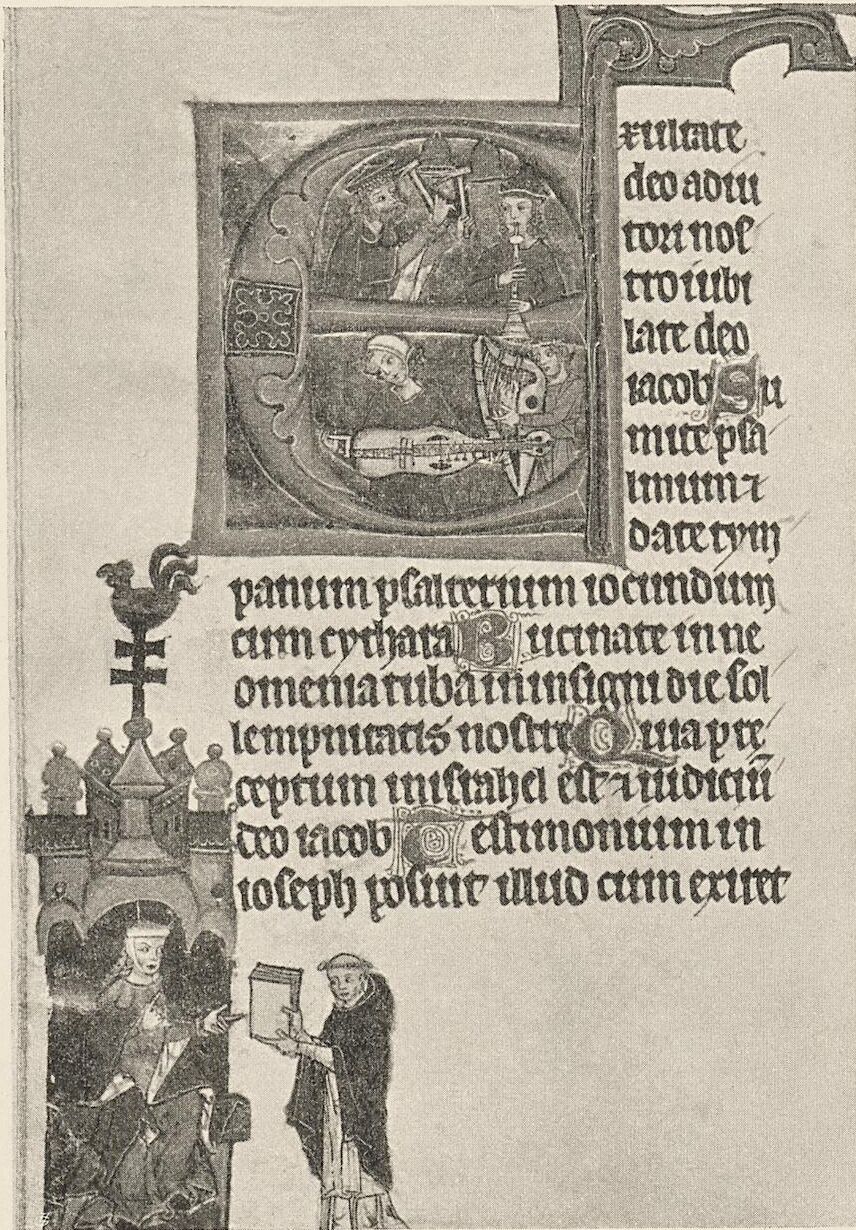 Exultate
deo adiu
tori nos
tro iubi
late deo
iacob Su
mite psa
lmum ⁊
date tym
panum psalterium iocundum
cum cythara Bucinate in ne
omenia tuba in insigni die sol
lempnitatis nostre Quia pre
ceptum in israhel est ⁊ iudiciū
deo iacob Testimonium in
ioseph posuit illud cum exiret